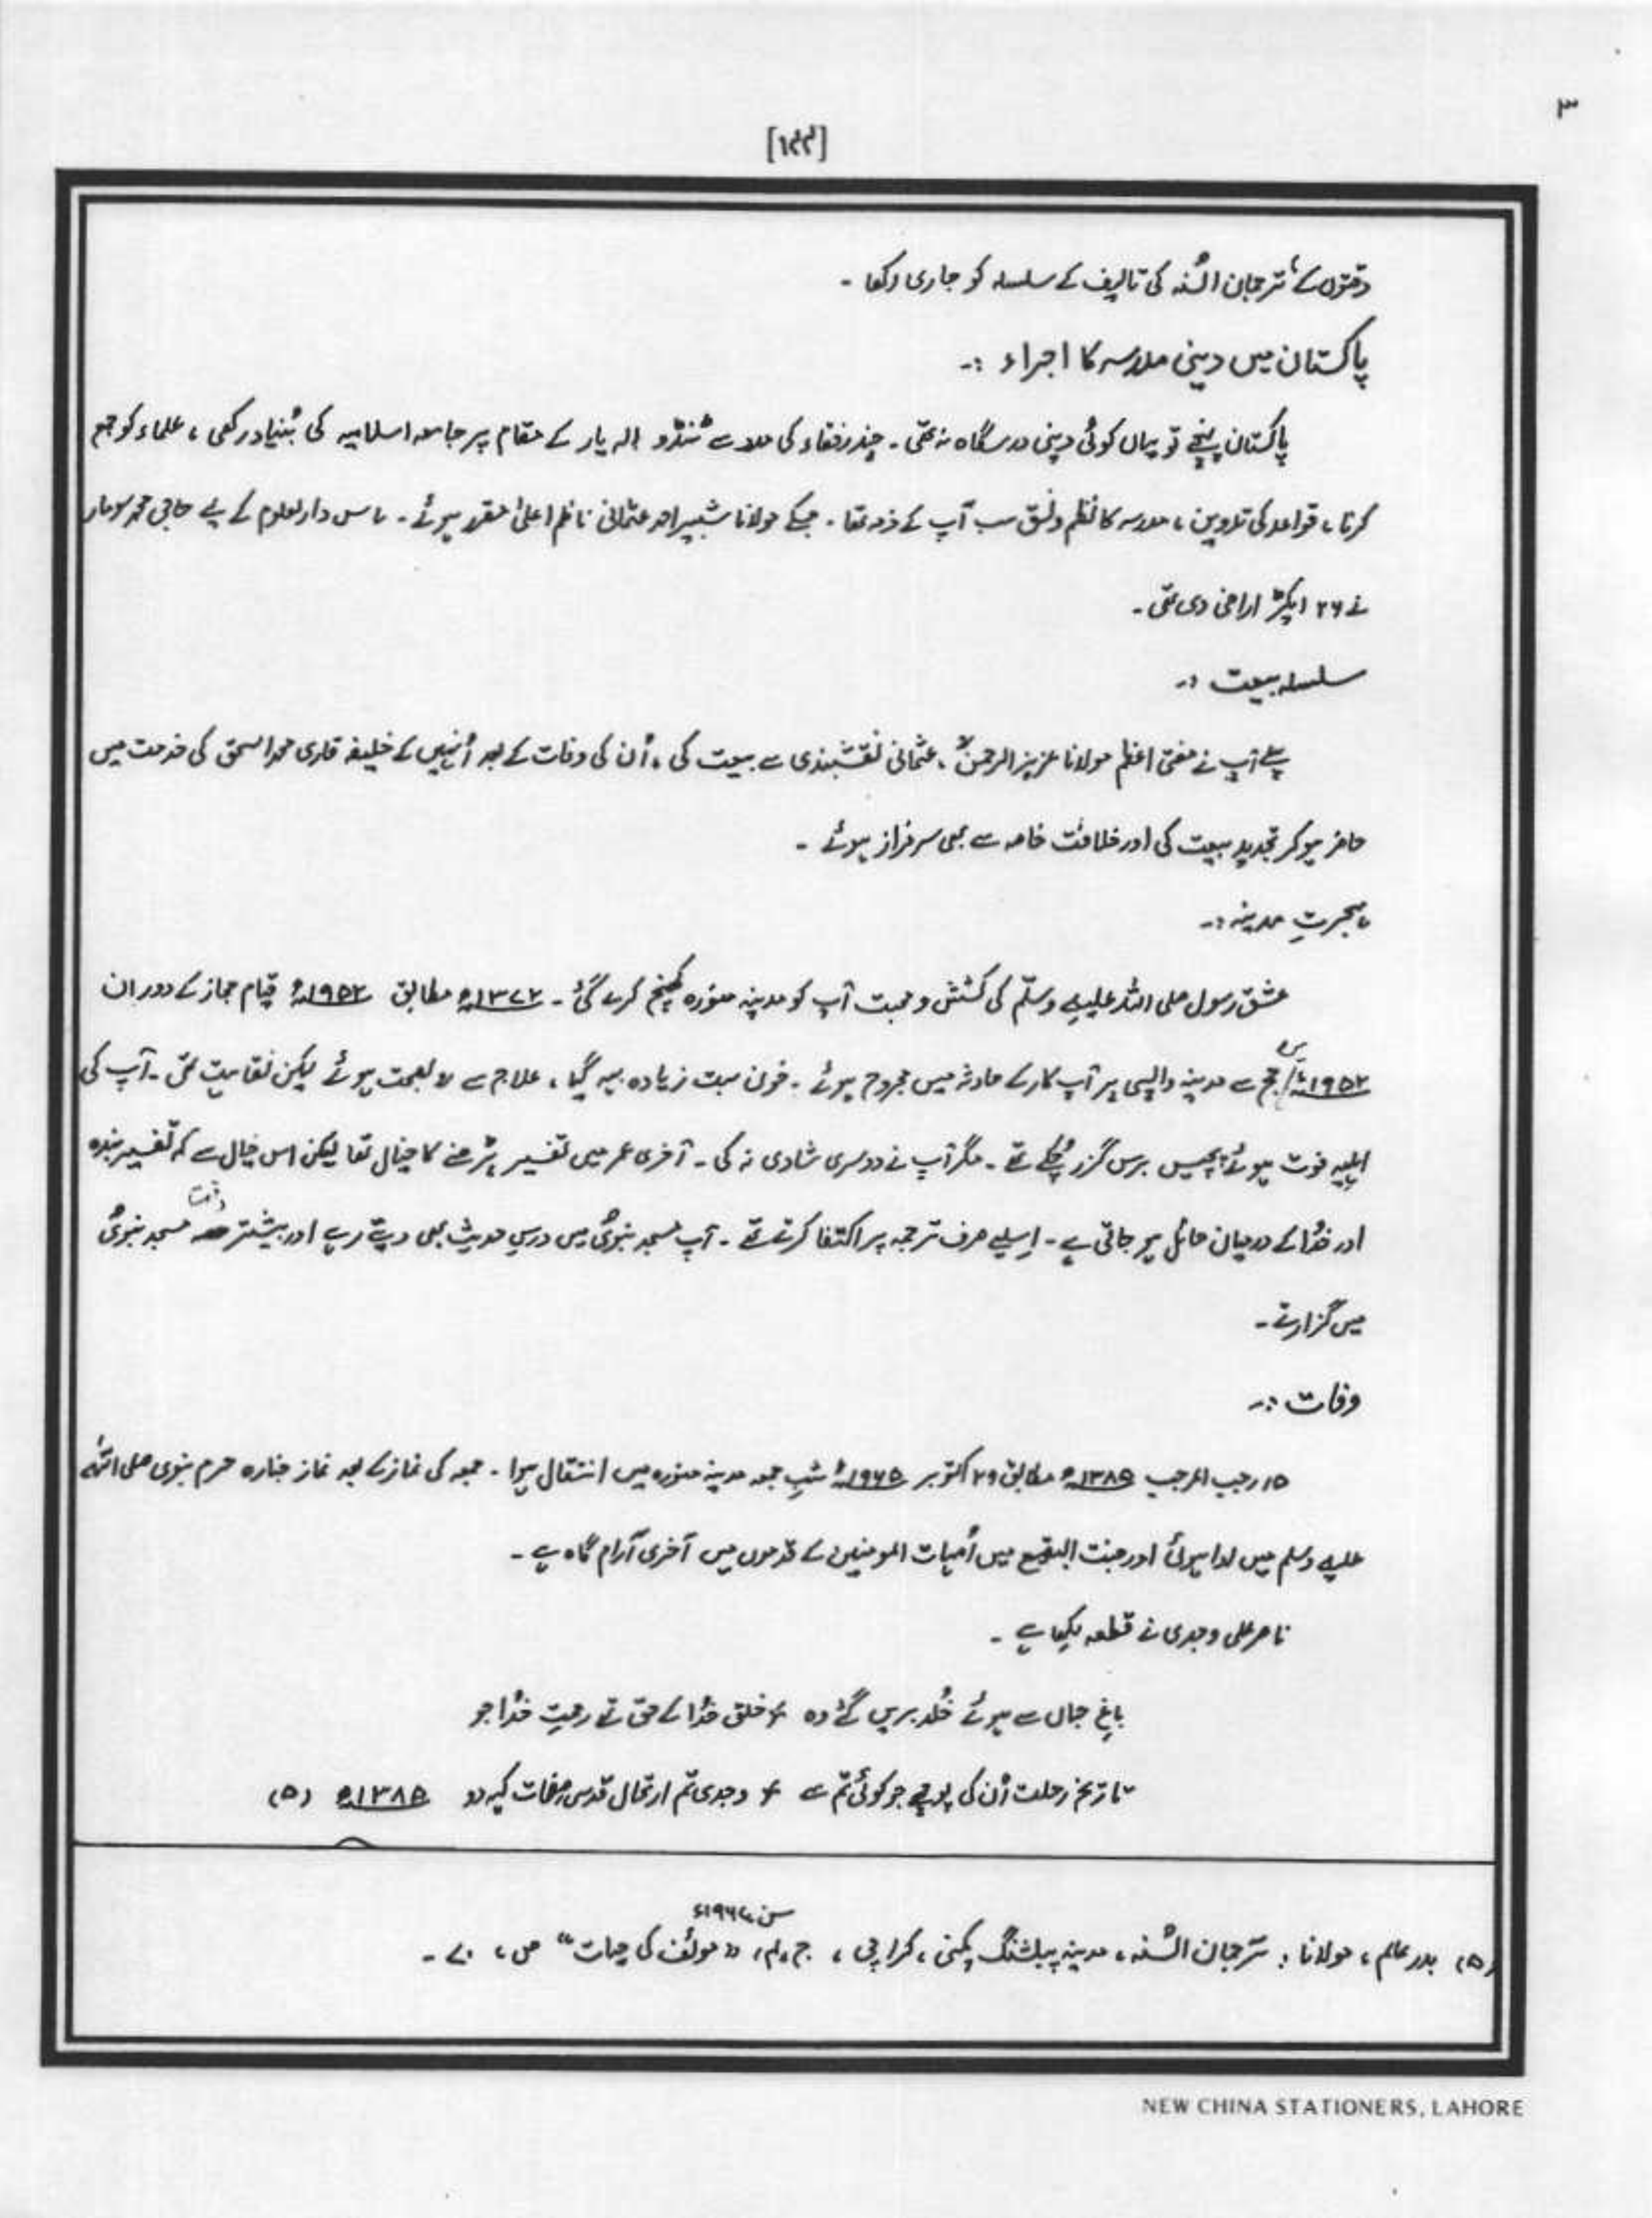 ۳
[۱۴۴]
دقتوں کے، ترجمان السُنہ کی تالیف کے سلسلہ کو جاری رکھا ۔
پاکستان میں دینی مدرسہ کا اجراء :۔
پاکستان پہنچے تو یہاں کوئی دینی درسگاہ نہ تھی ۔ چند رفقاء کی مدد سے ٹنڈو الہ یار کے مقام پر جامعہ اسلامیہ کی بُنیاد رکھی ، علماء کو جمع
کرنا ، قواعد کی تدوین ، مدرسہ کا نظم و نسق سب آپ کے ذمہ تھا ۔ جسکے مولانا شبیر احمد عثمانی ناظم اعلیٰ مقرر ہوئے ۔ اس دارلعلوم کے لیے حاجی محمد سومار
نے ۲۶ ایکڑ اراضی دی تھی ۔
سلسلہ بیعت :۔
پہلے آپ نے مفتی اعظم مولانا عزیز الرحمنؒ ، عثمانی نقشبندی سے بیعت کی ، اُن کی وفات کے بعد اُنہیں کے خلیفہ قاری محمد اسحق کی خدمت میں
حاضر ہو کر تجدید بیعت کی اور خلافت خاصہ سے بھی سرفراز ہوئے ۔
ہجرتِ مدینہ :۔
عشق رسول صلی اللہ علیہ وسلّم کی کشش و محبت آپ کو مدینہ منورہ کھینچ کر لے گئی ۔ ۱۳۷۲ھ مطابق ۱۹۵۲ء قیام حجاز کے دوران
۱۹۵۲ء میں حج سے مدینہ واپسی پر آپ کار کے حادثہ میں مجروح ہوئے ۔ خون بہت زیادہ بہہ گیا ، علاج سے رو بصحت ہوئے لیکن نقاہت تھی ۔ آپ کی
اہلیہ فوت ہوئے پچیس برس گزر چُکے تھے ۔ مگر آپ نے دوسری شادی نہ کی ۔ آخری عمر میں تفسیر پڑھنے کا خیال تھا لیکن اس خیال سے کہ تفسیر بندہ
اور خُدا کے درمیان حائل ہو جاتی ہے ۔ اِسلیے صرف ترجمہ پر اکتفا کرتے تھے ۔ آپ مسجد نبویؐ میں درسِ حدیث بھی دیتے رہے اور بیشتر وقت مسجد نبویؐ
میں گزارتے ۔
وفات :۔
۱۵ رجب المرجب ۱۳۸۵ھ مطابق ۲۹ اکتوبر ۱۹۶۵ء شبِ جمعہ مدینہ منورہ میں انتقال ہوا ۔ جمعہ کی نماز کے بعد نماز جنازہ حرم نبوی صلی اللہ
علیہ وسلم میں ادا ہوئی اور جنت البقیع میں اُمہات المومنین کے قدموں میں آخری آرام گاہ ہے ۔
ناصر علی وجدی نے قطعہ لکھا ہے ۔
باغِ جہاں سے ہوئے خُلد بریں گئے وہ / خلق خُدا کے حق تھے رحمتِ خُدا جو
تاریخ رحلت اُن کی پوچھے جو کوئی تم سے / وجدی تم ارتحال قدس صفات کہہ دو ۱۳۸۵ھ (۵)
سن ۱۹۶۷ء
(۵) بدر عالم ، مولانا : ترجمان السُنہ ، مدینہ پبلشنگ کمپنی ، کراچی ، ج ، ۴ ، " مولّف کی حیات " ص ، ۷۰ ۔
NEW CHINA STATIONERS, LAHORE